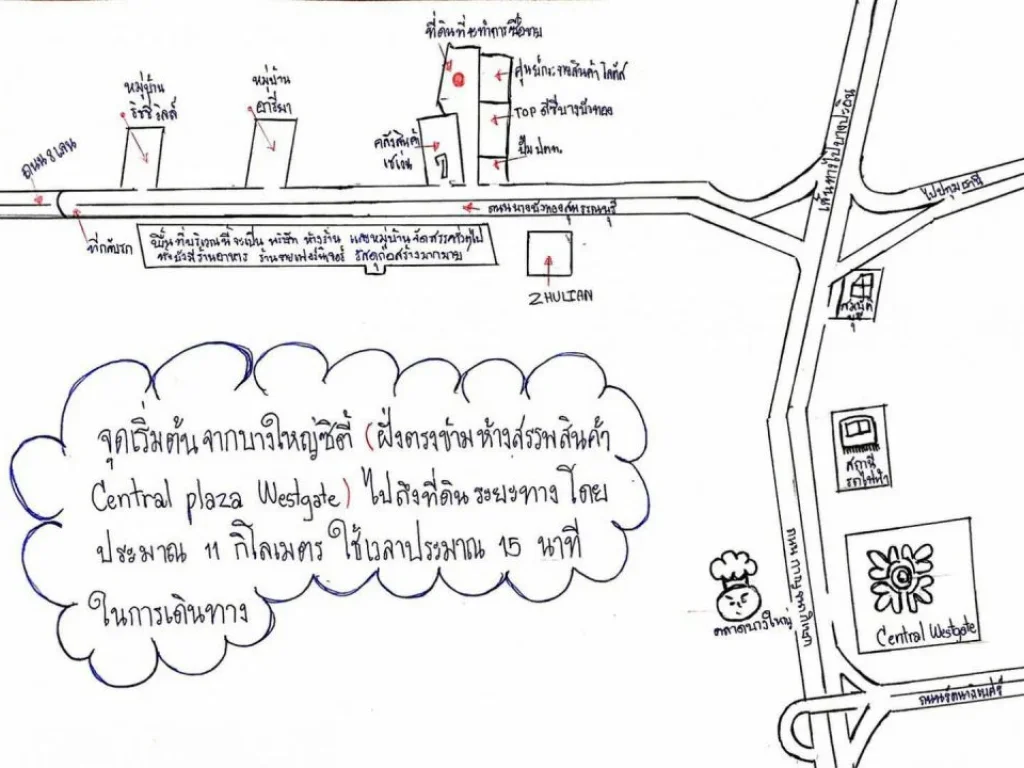 ที่ดินที่จะทำการซื้อขาย
หมู่บ้าน
ริชชี่วิลล์
หมู่บ้าน
อารีมา
ศูนย์กระจายสินค้า โลตัส
TOP ซิตี้บางบัวทอง
ปั๊ม ปตท.
คลังสินค้า
เซเว่น
7
ถนน 8 เลน
ที่กลับรถ
ถนนบางบัวทองสุพรรณบุรี
เส้นทางไปบางปะอิน
ไปปทุมธานี
พื้นที่บริเวณนี้จะเป็น บริษัท ห้างร้าน และหมู่บ้านจัดสรรทั่วไป
ทั้งยังมีร้านอาหาร ร้านขายเฟอร์นิเจอร์ วัสดุก่อสร้างมากมาย
ZHULIAN
จุดเริ่มต้น จากบางใหญ่ซิตี้ (ฝั่งตรงข้าม ห้างสรรพสินค้า
Central plaza Westgate) ไปถึงที่ดิน ระยะทาง โดย
ประมาณ 11 กิโลเมตร ใช้เวลาประมาณ 15 นาที
ในการเดินทาง
สถานี
รถไฟฟ้า
ถนน กาญจนาภิเษก
ตลาดบางใหญ่
Central Westgate
ถนนรัตนาธิเบศร์